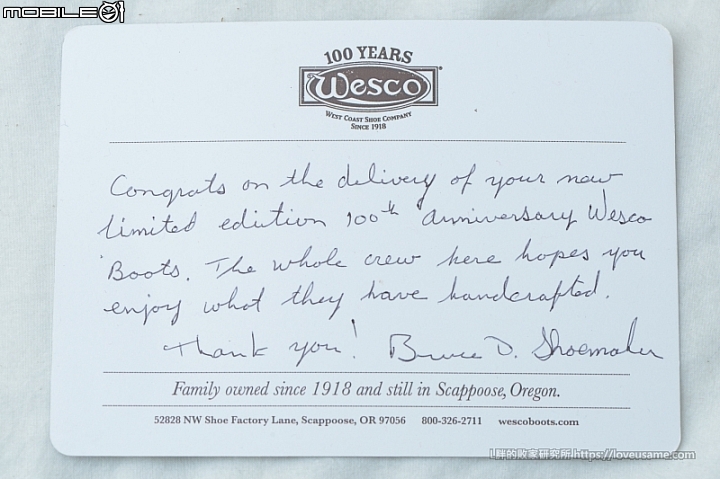 MOBILE01
100 YEARS
Wesco
WEST COAST SHOE COMPANY
SINCE 1918
Congrats on the delivery of your new
limited edition 100th anniversary Wesco
Boots. The whole crew here hopes you
enjoy what they have handcrafted.
Thank you! Bruce D. Shoemaker
Family owned since 1918 and still in Scappoose, Oregon.
52828 NW Shoe Factory Lane, Scappoose, OR 97056 800-326-2711 wescoboots.com
L胖的敗家研究所 https://loveusame.com